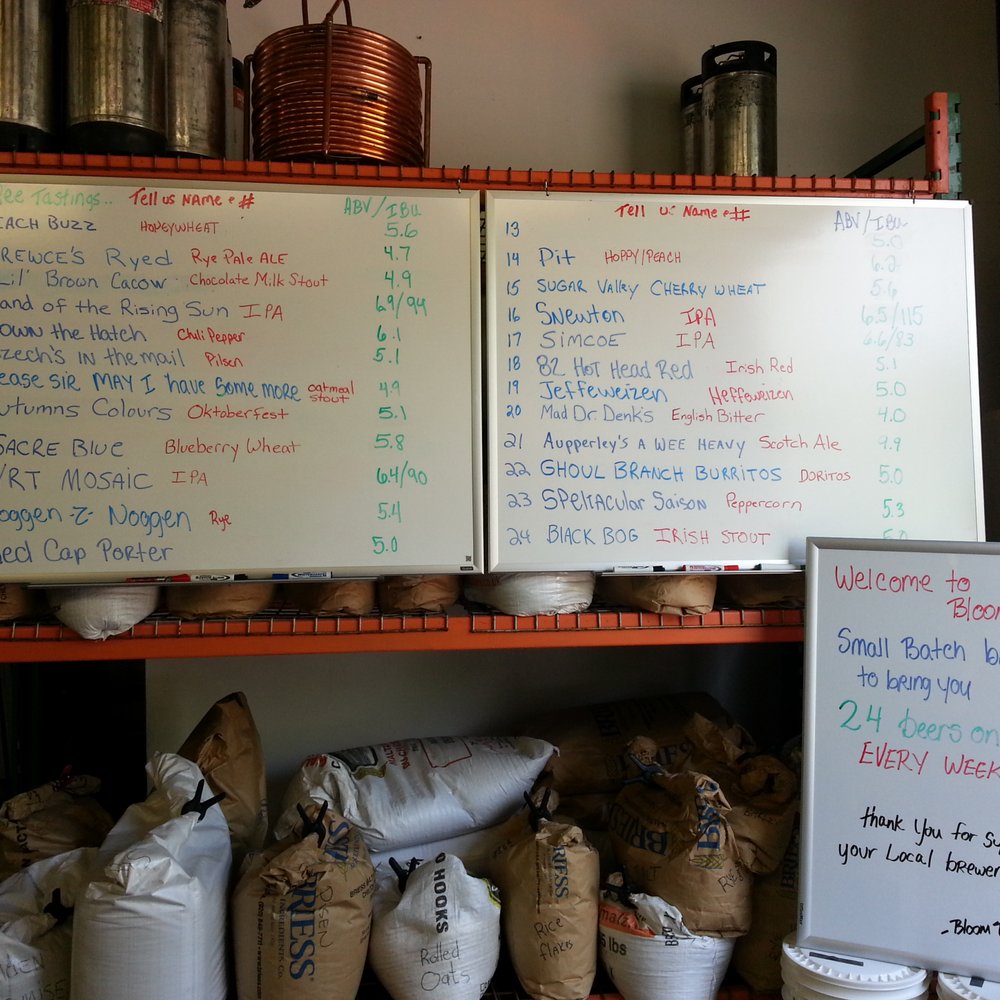 ee Tastings.. Tell us Name & # ABV/IBU
EACH BUZZ HONEYWHEAT 5.6
REWCE'S Ryed Rye Pale ALE 4.7
Lil' Brown Cacow Chocolate Milk Stout 4.9
and of the Rising Sun IPA 6.9/94
own the Hatch Chili Pepper 6.1
zech's in the mail Pilsen 5.1
ease sir MAY I have some more oatmeal stout 4.9
utumns Colours Oktoberfest 5.1
SACRE BLUE Blueberry Wheat 5.8
/RT MOSAIC IPA 6.4/90
oggen-z-Noggen Rye 5.4
ed Cap Porter 5.0
Tell us Name & # ABV/IBU
13 5.0
14 Pit HOPPY/PEACH 6.2
15 SUGAR VAlley CHERRY WHEAT 5.6
16 Snewton IPA 6.5/115
17 SIMCOE IPA 6.6/83
18 82 HOT HEAD Red Irish Red 5.1
19 Jeffeweizen Heffeweizen 5.0
20 Mad Dr. Denk's English Bitter 4.0
21 Aupperley's A WEE HEAVY Scotch Ale 9.9
22 GHOUL BRANCH BURRITOS DORITOS 5.0
23 SPeltacular Saison Peppercorn 5.3
24 BLACK BOG IRISH STOUT 5.0
Welcome to
Bloom
Small Batch b
to bring you
24 beers on
EVERY WEEK
thank you for su
your Local brewer
-Bloom T
BRIESS
INGREDIENTS CO.
BRIESS
BRIESS
BRIESS
O HOOKS
Rolled
Oats
Rice
flakes